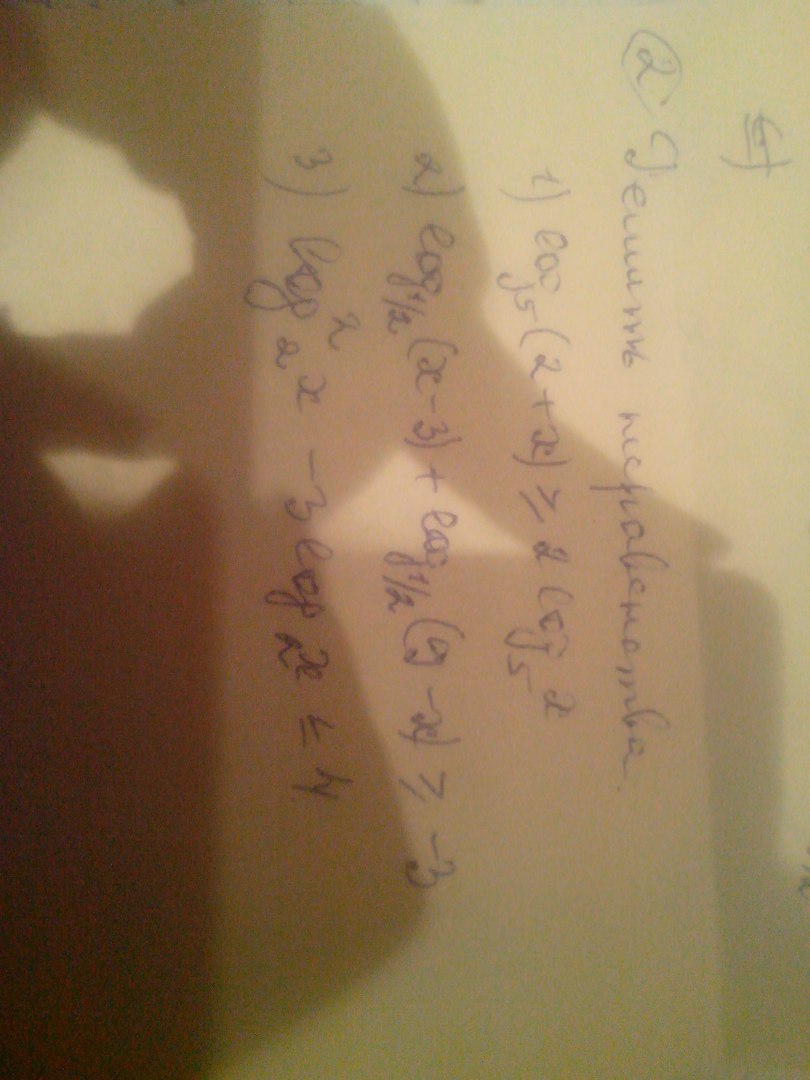 ② Решить неравенства.
1) log₅(2+x) ≥ 2 log₅ x
2) log₁/₂ (x-3) + log₁/₂ (9-x) ≥ -3
3) log²₂ x - 3 log₂ x ≤ 4